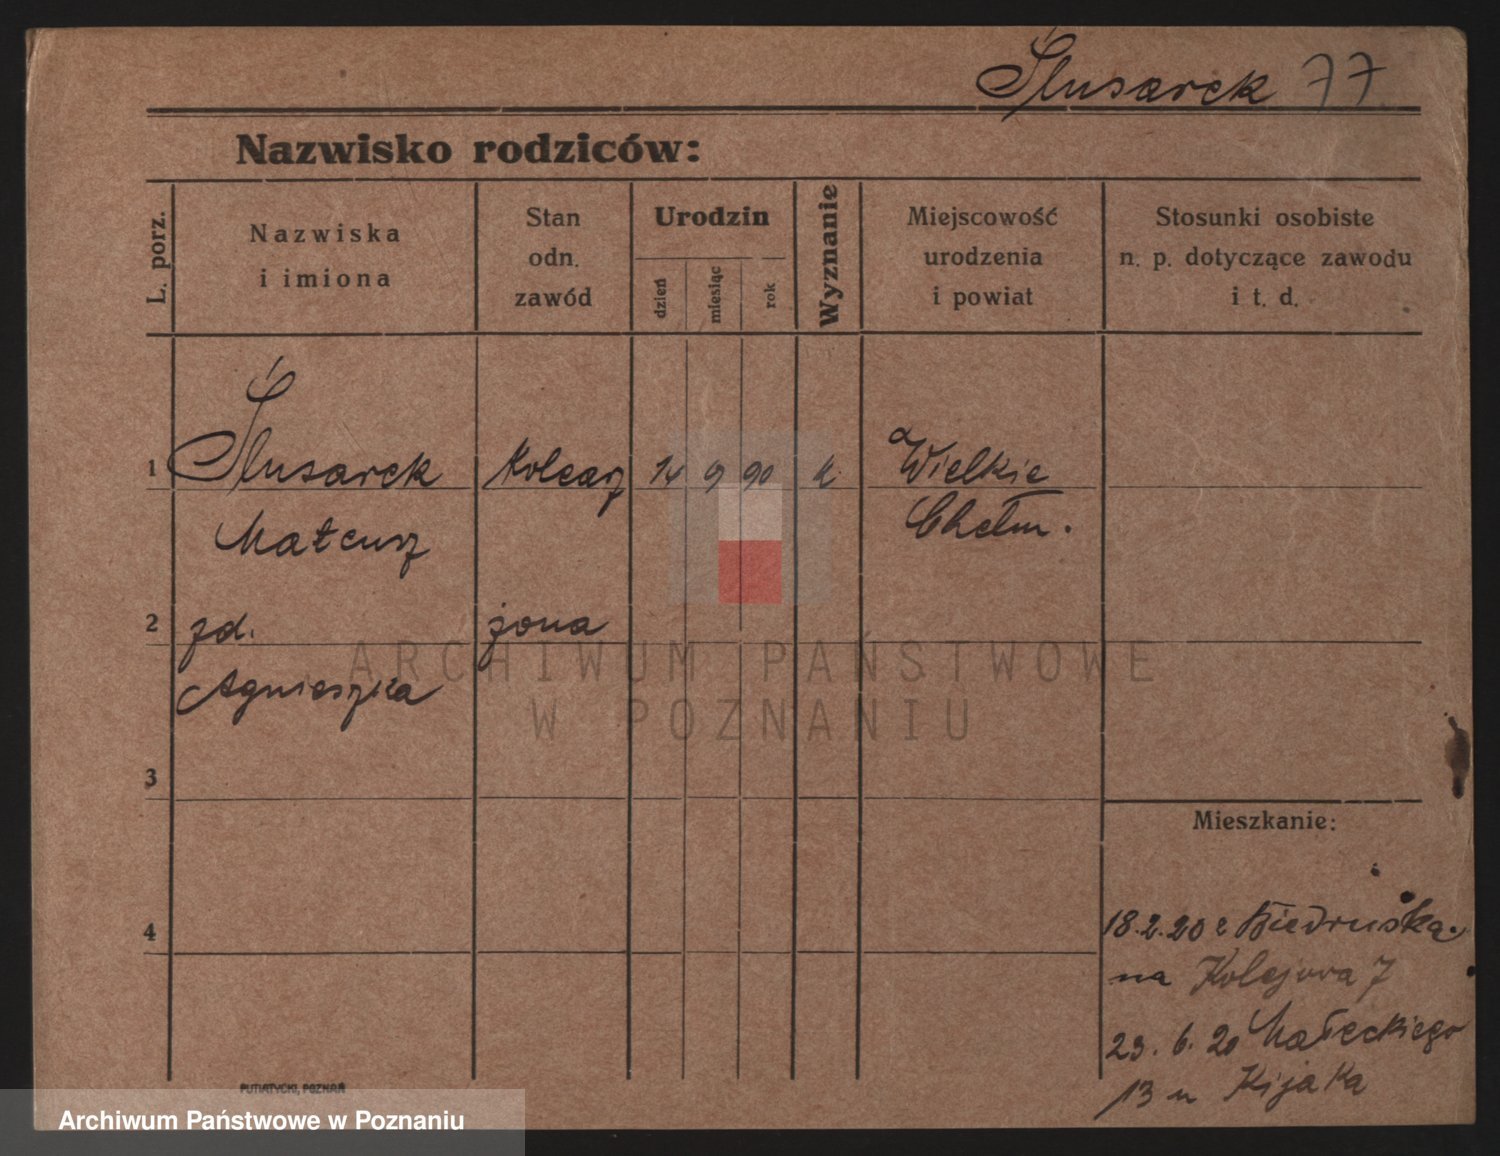 Ślusarek 77
Nazwisko rodziców:
L. porz.
Nazwiska
i imiona
Stan
odn.
zawód
Urodzin
dzień
miesiąc
rok
Wyznanie
Miejscowość
urodzenia
i powiat
Stosunki osobiste
n. p. dotyczące zawodu
i t. d.
1 Ślusarek Kolearz 14 9 90 k. Wielkie
Mateusz Chełm.
2 zd. żona
Agnieszka
ARCHIWUM PAŃSTWOWE
W POZNANIU
3
Mieszkanie:
4
18.2.20 z Biedruska
na Kolejowa 7
23. 6. 20 Małeckiego
13 u Kijaka
PUTIATYCKI, POZNAŃ
Archiwum Państwowe w Poznaniu